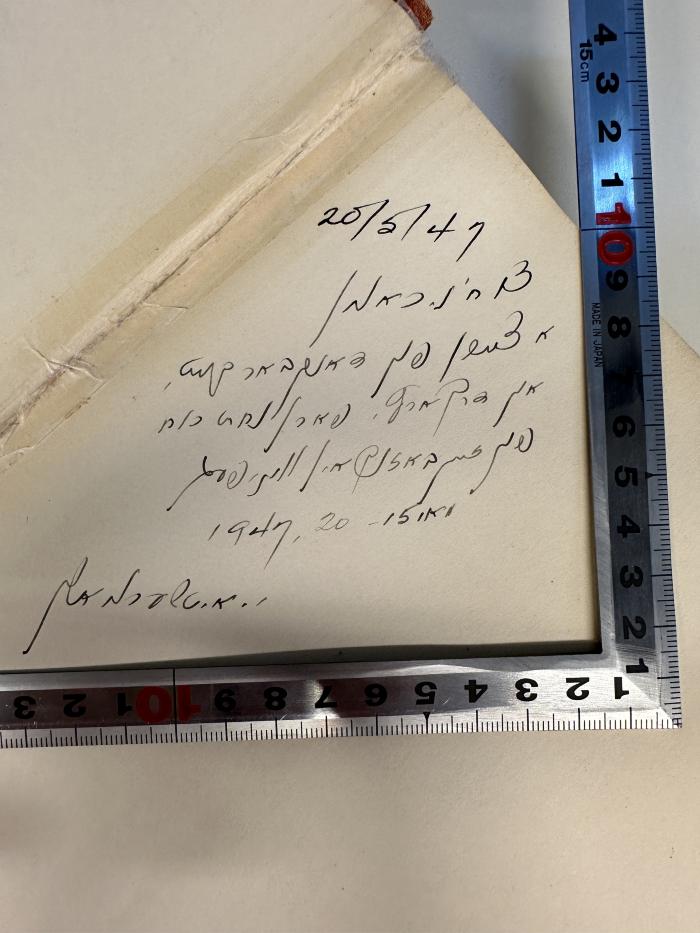 20/5/47
א צייכן פון דאנקבארקייט,
און דרך ארץ, פארן נחת רוח
פון זיין באזוך אין וויניפעג
מאי 15 - 20, 1947
4 3 2 1 10 9 8 7 6 5 4 3 2 1
15cm
MADE IN JAPAN
1 2 3 4 5 6 7 8 9 10 1 2 3